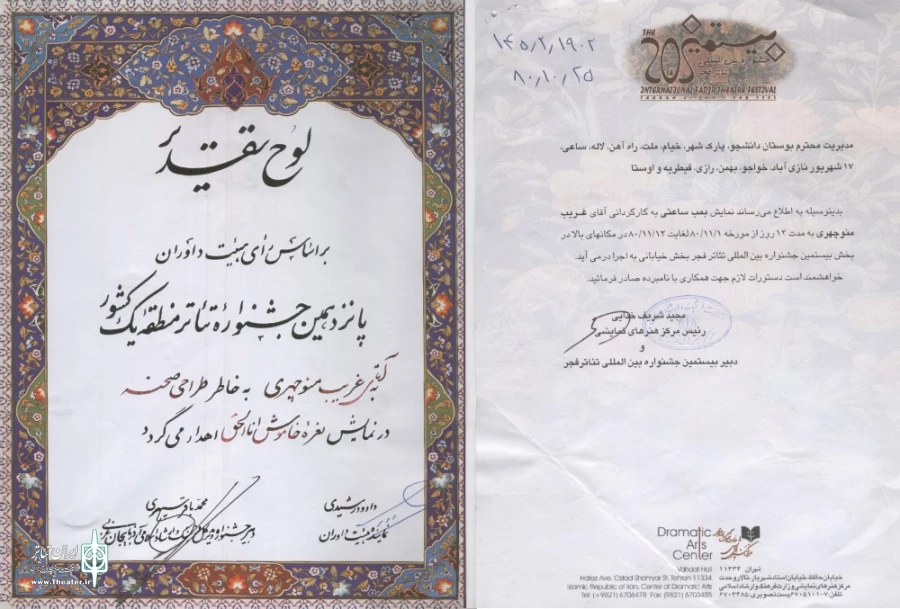 لوح تقدیر
براساس رای هیئت داوران
پانزدهمین جشنوارهٔ تئاتر منطقه یک کشور
به آقای غریب منوچهری به خاطر طراحی صحنه
در نمایش نعره خاموش اناالحق اهدا می گردد
داود رشیدی
نماینده هیئت داوران
ایران تئاتر
www.Theater.ir
۱۴۵/۲/۱۹۰۲
۸۰/۱۰/۲۵
THE
20
بیستمین
INTERNATIONAL FADJR THEATER FESTIVAL
مدیریت محترم بوستان دانشجو، پارک شهر، خیام، ملت، راه آهن، لاله، ساعی،
۱۷ شهریور نازی آباد، خواجو، بهمن، رازی، قیطریه و اوستا
بدینوسیله به اطلاع می‌رساند نمایش بمب ساعتی به کارگردانی آقای غریب
منوچهری به مدت ۱۲ روز از مورخه ۸۰/۱۱/۱ لغایت ۸۰/۱۱/۱۲ در مکانهای بالا در
بخش بیستمین جشنواره بین المللی تئاتر فجر بخش خیابانی به اجرا در می آید.
خواهشمند است دستورات لازم جهت همکاری با نامبرده صادر فرمائید.
مجید شریف خدایی
رئیس مرکز هنرهای نمایشی
و
دبیر بیستمین جشنواره بین المللی تئاتر فجر
Dramatic
Arts
Center
Vahdat Hall
Hafez Ave. Ostad Shahriyar St. Tehran 11334
Islamic Republic of Iran, Center of Dramatic Arts
Tel: (+9821) 6706478 Fax: (9821) 6703485
تهران ۱۱۳۳۴
خیابان حافظ خیابان استاد شهریار تالار وحدت
مرکز هنرهای نمایشی وزارت فرهنگ و ارشاد اسلامی